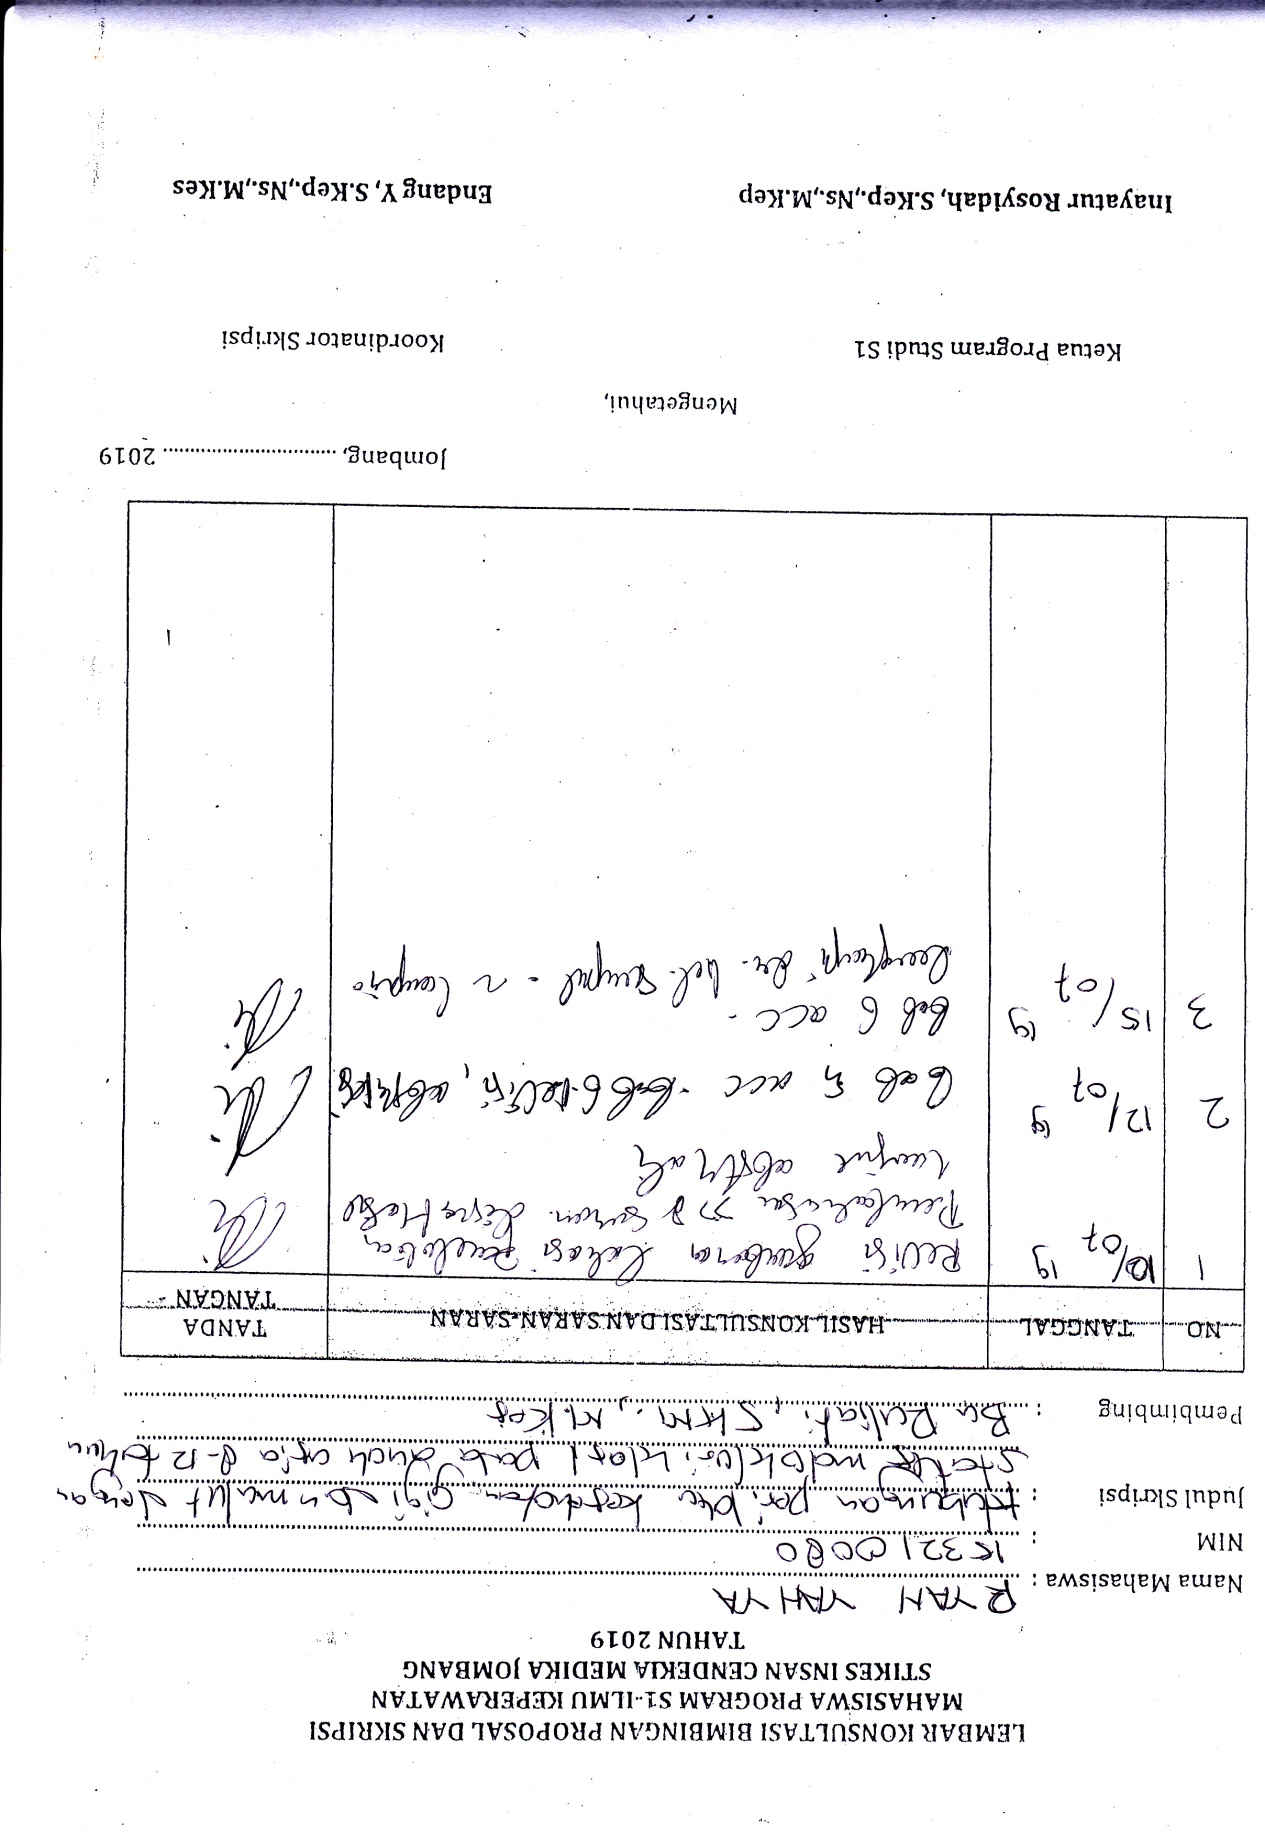 LEMBAR KONSULTASI BIMBINGAN PROPOSAL DAN SKRIPSI
MAHASISWA PROGRAM S1-ILMU KEPERAWATAN
STIKES INSAN CENDEKIA MEDIKA JOMBANG
TAHUN 2019
Nama Mahasiswa : RYAN YAHYA
NIM : 153210080
Judul Skripsi : Hubungan perilaku kesehatan gigi dan mulut dengan
status maloklusi klas 1 pada anak usia 8-12 tahun
Pembimbing : Bu Ruliati, SKM., M.Kes
NO TANGGAL HASIL KONSULTASI DAN SARAN-SARAN TANDA TANGAN
1 10/07 19 Revisi gambaran lokasi Penelitian,
Pembahasan
abstrak
2 12/07 19 Bab 5 acc - Bab 6 revisi, abstrak
3 15/07 19 Bab 6 acc -
Jombang, ................................. 2019
Mengetahui,
Ketua Program Studi S1 Koordinator Skripsi
Inayatur Rosyidah, S.Kep.,Ns.,M.Kep Endang Y, S.Kep.,Ns.,M.Kes